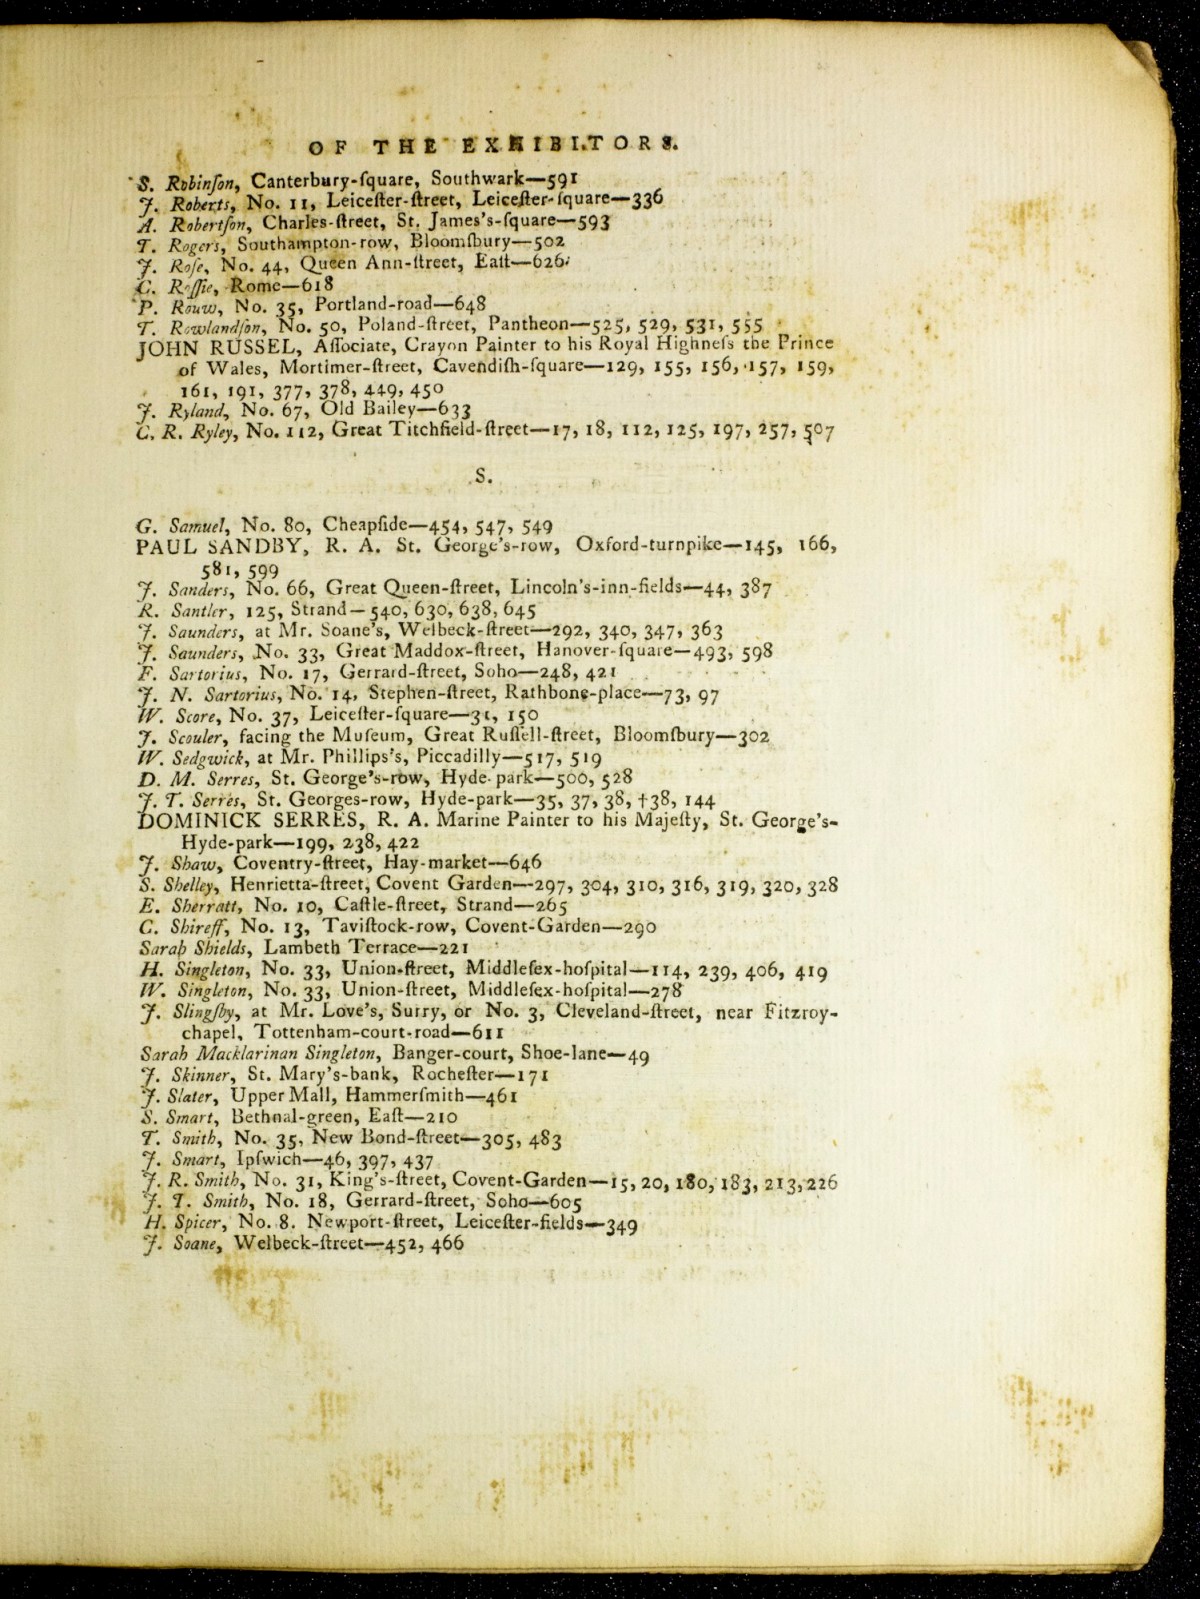 OF THE EXHIBITORS.
S. Robinſon, Canterbury-ſquare, Southwark—591
J. Roberts, No. 11, Leiceſter-ſtreet, Leiceſter-ſquare—336
A. Robertſon, Charles-ſtreet, St. James's-ſquare—593
T. Rogers, Southampton-row, Bloomſbury—502
J. Roſe, No. 44, Queen Ann-ſtreet, Eaſt—626
C. Roſſie, Rome—618
P. Rouw, No. 35, Portland-road—648
T. Rowlandſon, No. 50, Poland-ſtreet, Pantheon—525, 529, 531, 555
JOHN RUSSEL, Aſſociate, Crayon Painter to his Royal Highneſs the Prince
of Wales, Mortimer-ſtreet, Cavendiſh-ſquare—129, 155, 156, 157, 159,
161, 191, 377, 378, 449, 450
J. Ryland, No. 67, Old Bailey—633
C. R. Ryley, No. 112, Great Titchfield-ſtreet—17, 18, 112, 125, 197, 257, 507
S.
G. Samuel, No. 80, Cheapſide—454, 547, 549
PAUL SANDBY, R. A. St. George's-row, Oxford-turnpike—145, 166,
581, 599
J. Sanders, No. 66, Great Queen-ſtreet, Lincoln's-inn-fields—44, 387
R. Santler, 125, Strand—540, 630, 638, 645
J. Saunders, at Mr. Soane's, Welbeck-ſtreet—292, 340, 347, 363
J. Saunders, No. 33, Great Maddox-ſtreet, Hanover-ſquare—493, 598
F. Sartorius, No. 17, Gerrard-ſtreet, Soho—248, 421
J. N. Sartorius, No. 14, Stephen-ſtreet, Rathbone-place—73, 97
W. Score, No. 37, Leiceſter-ſquare—31, 150
J. Scouler, facing the Muſeum, Great Ruſſell-ſtreet, Bloomſbury—302
W. Sedgwick, at Mr. Phillips's, Piccadilly—517, 519
D. M. Serres, St. George's-row, Hyde-park—500, 528
J. T. Serres, St. Georges-row, Hyde-park—35, 37, 38, †38, 144
DOMINICK SERRES, R. A. Marine Painter to his Majeſty, St. George's-
Hyde-park—199, 238, 422
J. Shaw, Coventry-ſtreet, Hay-market—646
S. Shelley, Henrietta-ſtreet, Covent Garden—297, 304, 310, 316, 319, 320, 328
E. Sherratt, No. 10, Caſtle-ſtreet, Strand—265
C. Shireff, No. 13, Taviſtock-row, Covent-Garden—290
Sarah Shields, Lambeth Terrace—221
H. Singleton, No. 33, Union-ſtreet, Middleſex-hoſpital—114, 239, 406, 419
W. Singleton, No. 33, Union-ſtreet, Middleſex-hoſpital—278
J. Slingſby, at Mr. Love's, Surry, or No. 3, Cleveland-ſtreet, near Fitzroy-
chapel, Tottenham-court-road—611
Sarah Macklarinan Singleton, Banger-court, Shoe-lane—49
J. Skinner, St. Mary's-bank, Rocheſter—171
J. Slater, Upper Mall, Hammerſmith—461
S. Smart, Bethnal-green, Eaſt—210
T. Smith, No. 35, New Bond-ſtreet—305, 483
J. Smart, Ipſwich—46, 397, 437
J. R. Smith, No. 31, King's-ſtreet, Covent-Garden—15, 20, 180, 183, 213, 226
J. T. Smith, No. 18, Gerrard-ſtreet, Soho—605
H. Spicer, No. 8. Newport-ſtreet, Leiceſter-fields—349
J. Soane, Welbeck-ſtreet—452, 466